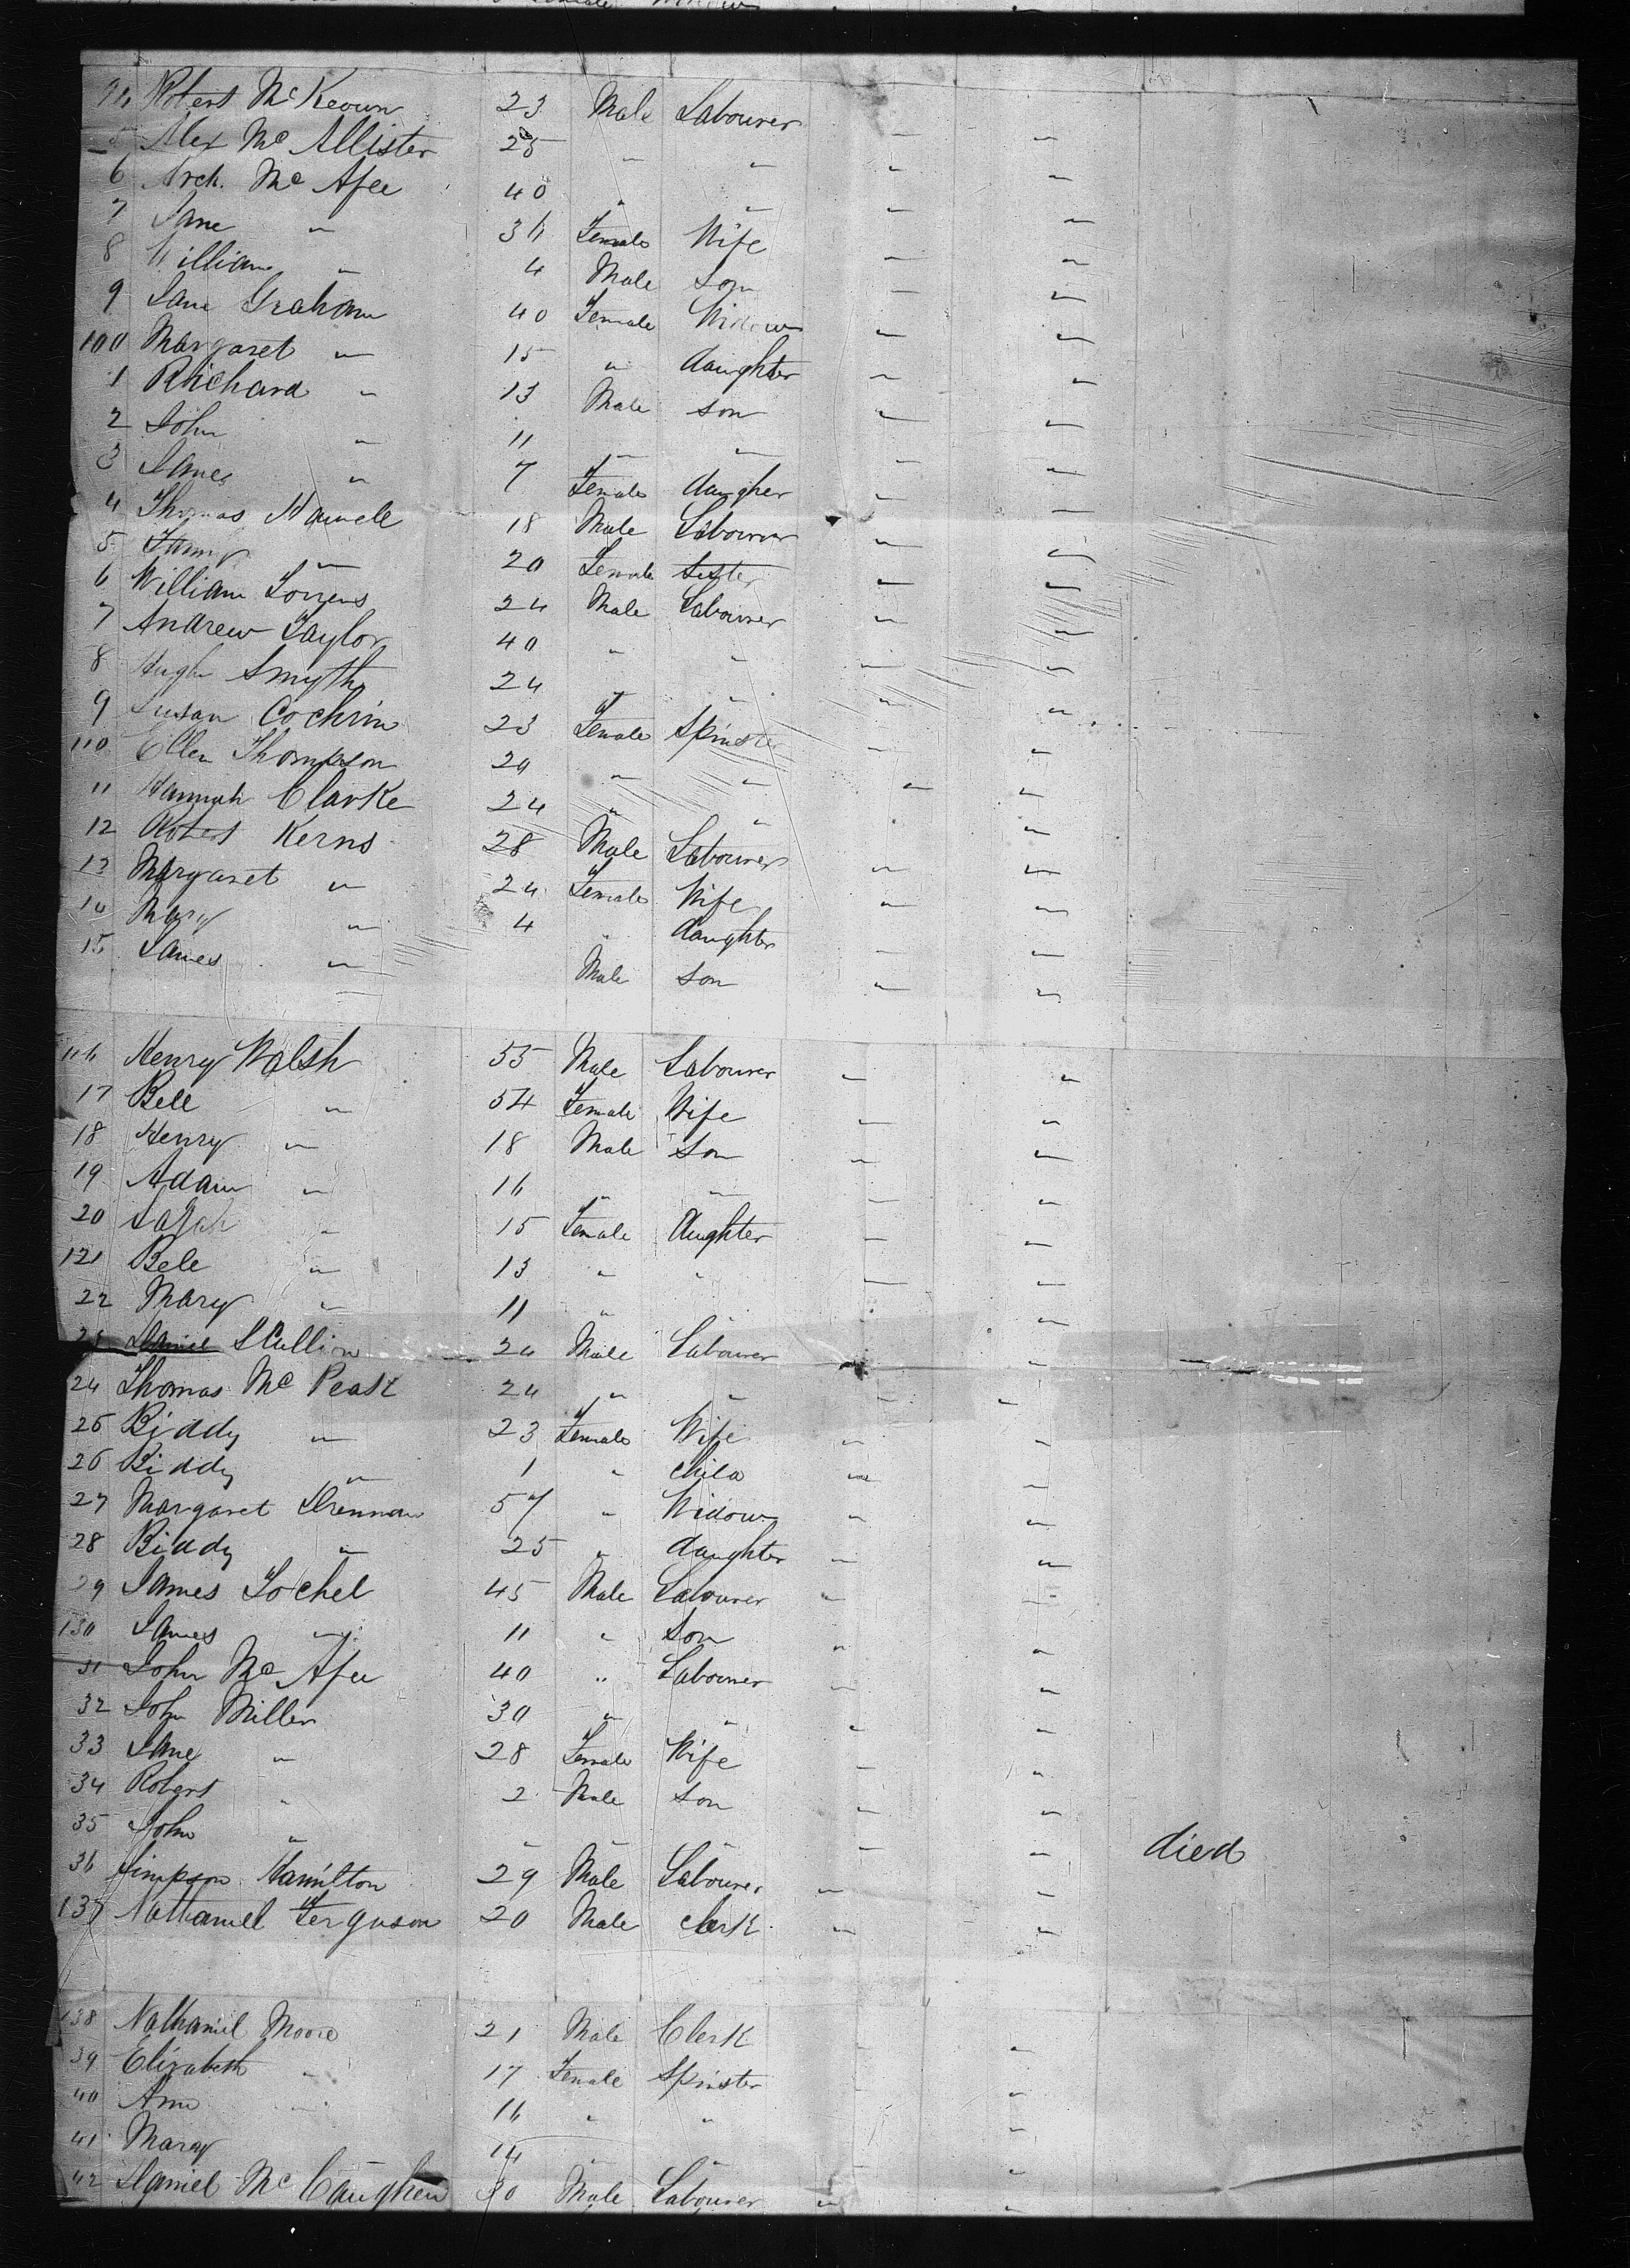 94 Robert McKeown 23 Male Labourer " "
5 Alex McAllister 25 " " " "
6 Arch. McAfee 40 " " " "
7 Jane " 36 Female Wife " "
8 William " 4 Male Son " "
9 Jane Graham 40 Female Widow " "
100 Margaret " 15 " daughter " "
1 Richard " 13 Male son " "
2 John " 11 " " " "
3 Jane " 7 Female daugher " "
4 Thomas 18 Male Labourer " "
5 Fanny " 20 Female Sister " "
6 William 24 Male Labourer " "
7 Andrew Taylor 40 " " " "
8 Hugh Smyth 24 " " " "
9 Susan Cochrin 23 Female Spinster " "
110 Ellen Thompson 20 " " " "
11 Hannah Clarke 24 " " " "
12 Robert Kerns 28 Male Labourer " "
13 Margaret " 24 Female Wife " "
14 Mary " 4 " daughter " "
15 James " Male son " "
116 Henry Walsh 55 Male Labourer " "
17 Bell " 54 Female Wife " "
18 Henry " 18 Male Son " "
19 Adam " 16 " " " "
20 Sarah " 15 Female Aughter " "
121 Bell " 13 " " " "
22 Mary " 11 " " "
23 Daniel Scullion 24 Male Labourer "
24 Thomas McPeak 24 " " " "
25 Biddy " 23 Female Wife " "
26 Biddy " 1 " child " "
27 Margaret Drennan 57 " Widow " "
28 Biddy " 25 " daughter " "
29 James Lochel 45 Male Labourer " "
130 James " 11 " Son " "
31 John McAfee 40 " Labourer " "
32 John Miller 30 " " " "
33 Jane " 28 Female Wife " "
34 Robert " 2 Male Son " "
35 John " " " " " " died
36 Simpson Hamilton 29 Male Labourer " "
137 Nathaniel Ferguson 20 Male clerk " "
138 Nathaniel Moore 21 Male Clerk " "
39 Elizabeth " 17 Female Spinster " "
40 Ann " 16 " " "
41 Mary 14 " " " "
42 Daniel McCaughen 30 Male Labourer " "